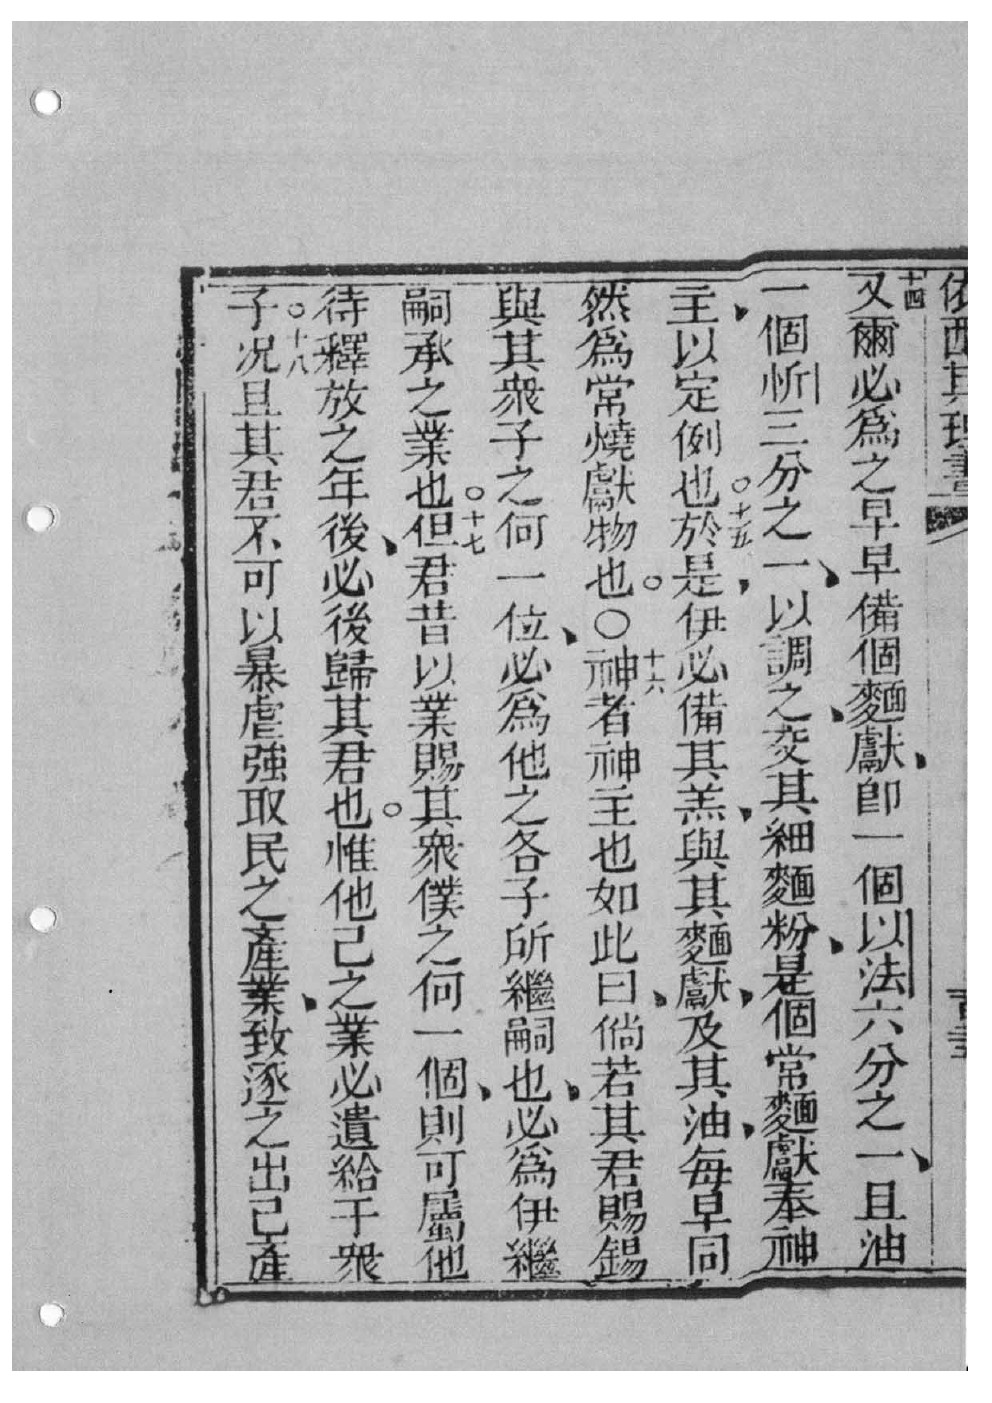 依西其理書
十四又爾必為之早早備個麵獻、卽一個以法六分之一、且油
一個忻三分之一、以調之、交其細麵粉、是個常麵獻奉神
主、以定例也。十五於是、伊必備其羔、與其麵獻、及其油、每早同
然為常燒獻物也。〇十六神者神主也如此曰、倘若其君賜錫
與其衆子之何一位、必為他之各子所繼嗣也、必為伊繼
嗣承之業也。十七但君昔以業賜其衆僕之何一個、則可屬他
待釋放之年後、必後歸其君也。惟他己之業必遺給于衆
子。十八况且其君不可以暴虐強取民之產業、致逐之出己產